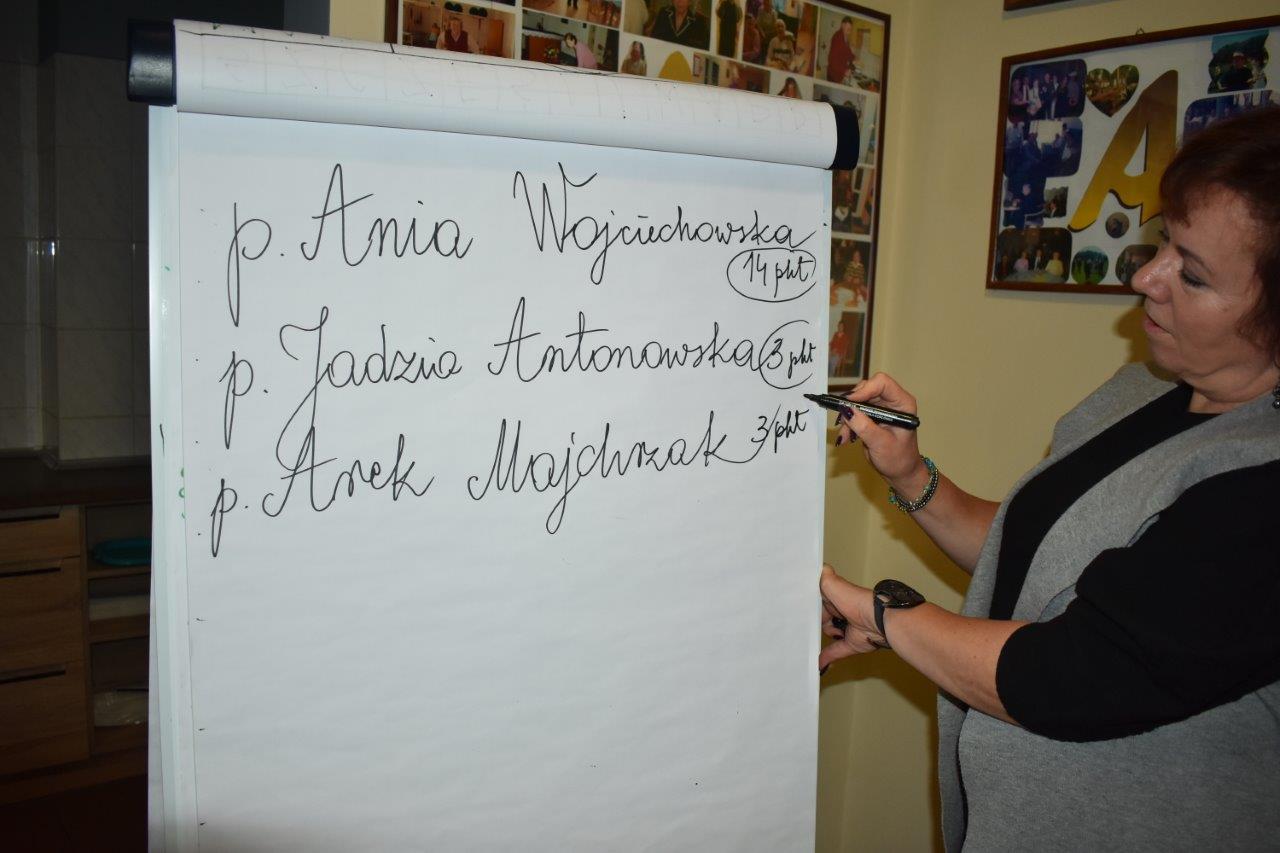 p. Ania Wojciechowska
14 pkt
p. Jadzia Antonowska 3 pkt
p. Arek Majchrzak 3 pkt
FA